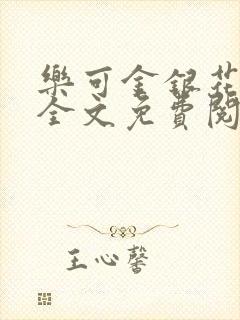 樂可金銀花
全文免費閱
王心馨